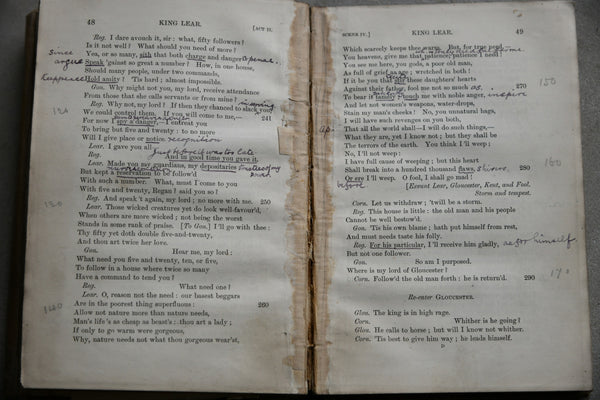 48 KING LEAR. [ACT II.
Reg. I dare avouch it, sir: what, fifty followers?
Is it not well? What should you need of more?
Yea, or so many, sith that both charge and danger
Since
Speak 'gainst so great a number? How, in one house,
argue
Should many people, under two commands,
Hold amity? 'Tis hard; almost impossible.
Gon. Why might not you, my lord, receive attendance
From those that she calls servants or from mine?
Reg. Why not, my lord? If then they chanced to slack you,
We could control them. If you will come to me,—
For now I spy a danger,—I entreat you 241
To bring but five and twenty: to no more
Will I give place or notice. recognition
Lear. I gave you all—
Just before it was too late
Reg. And in good time you gave it.
Lear. Made you my guardians, my depositaries
But kept a reservation to be follow'd
With such a number. What, must I come to you
With five and twenty, Regan? said you so?
Reg. And speak 't again, my lord; no more with me. 250
Lear. Those wicked creatures yet do look well-favour'd,
130
When others are more wicked; not being the worst
Stands in some rank of praise. [To Gon.] I'll go with thee:
Thy fifty yet doth double five-and-twenty,
And thou art twice her love.
Gon. Hear me, my lord:
What need you five and twenty, ten, or five,
To follow in a house where twice so many
Have a command to tend you?
Reg. What need one?
Lear. O, reason not the need: our basest beggars
Are in the poorest thing superfluous: 260
140
Allow not nature more than nature needs,
Man's life 's as cheap as beast's: thou art a lady;
If only to go warm were gorgeous,
Why, nature needs not what thou gorgeous wear'st,
SCENE IV.] KING LEAR. 49
Which scarcely keeps thee warm. But, for true need,—
You heavens, give me that patience, patience I need!
You see me here, you gods, a poor old man,
As full of grief as age; wretched in both!
If it be you that stir these daughters' hearts
Against their father, fool me not so much 270
150
To bear it tamely; touch me with noble anger, inspire
And let not women's weapons, water-drops,
Stain my man's cheeks! No, you unnatural hags,
I will have such revenges on you both,
That all the world shall—I will do such things,—
What they are, yet I know not; but they shall be
The terrors of the earth. You think I'll weep;
No, I'll not weep:
I have full cause of weeping; but this heart
Shall break into a hundred thousand flaws, 280
160
Or ere I'll weep. O fool, I shall go mad!
before
[Exeunt Lear, Gloucester, Kent, and Fool.
Storm and tempest.
Corn. Let us withdraw; 'twill be a storm.
Reg. This house is little: the old man and his people
Cannot be well bestow'd.
Gon. 'Tis his own blame; hath put himself from rest,
And must needs taste his folly.
Reg. For his particular, I'll receive him gladly, as for himself
But not one follower.
Gon. So am I purposed.
Where is my lord of Gloucester?
Corn. Follow'd the old man forth: he is return'd. 290
170
Re-enter GLOUCESTER.
Glou. The king is in high rage.
Corn. Whither is he going?
Glou. He calls to horse; but will I know not whither.
Corn. 'Tis best to give him way; he leads himself.
D